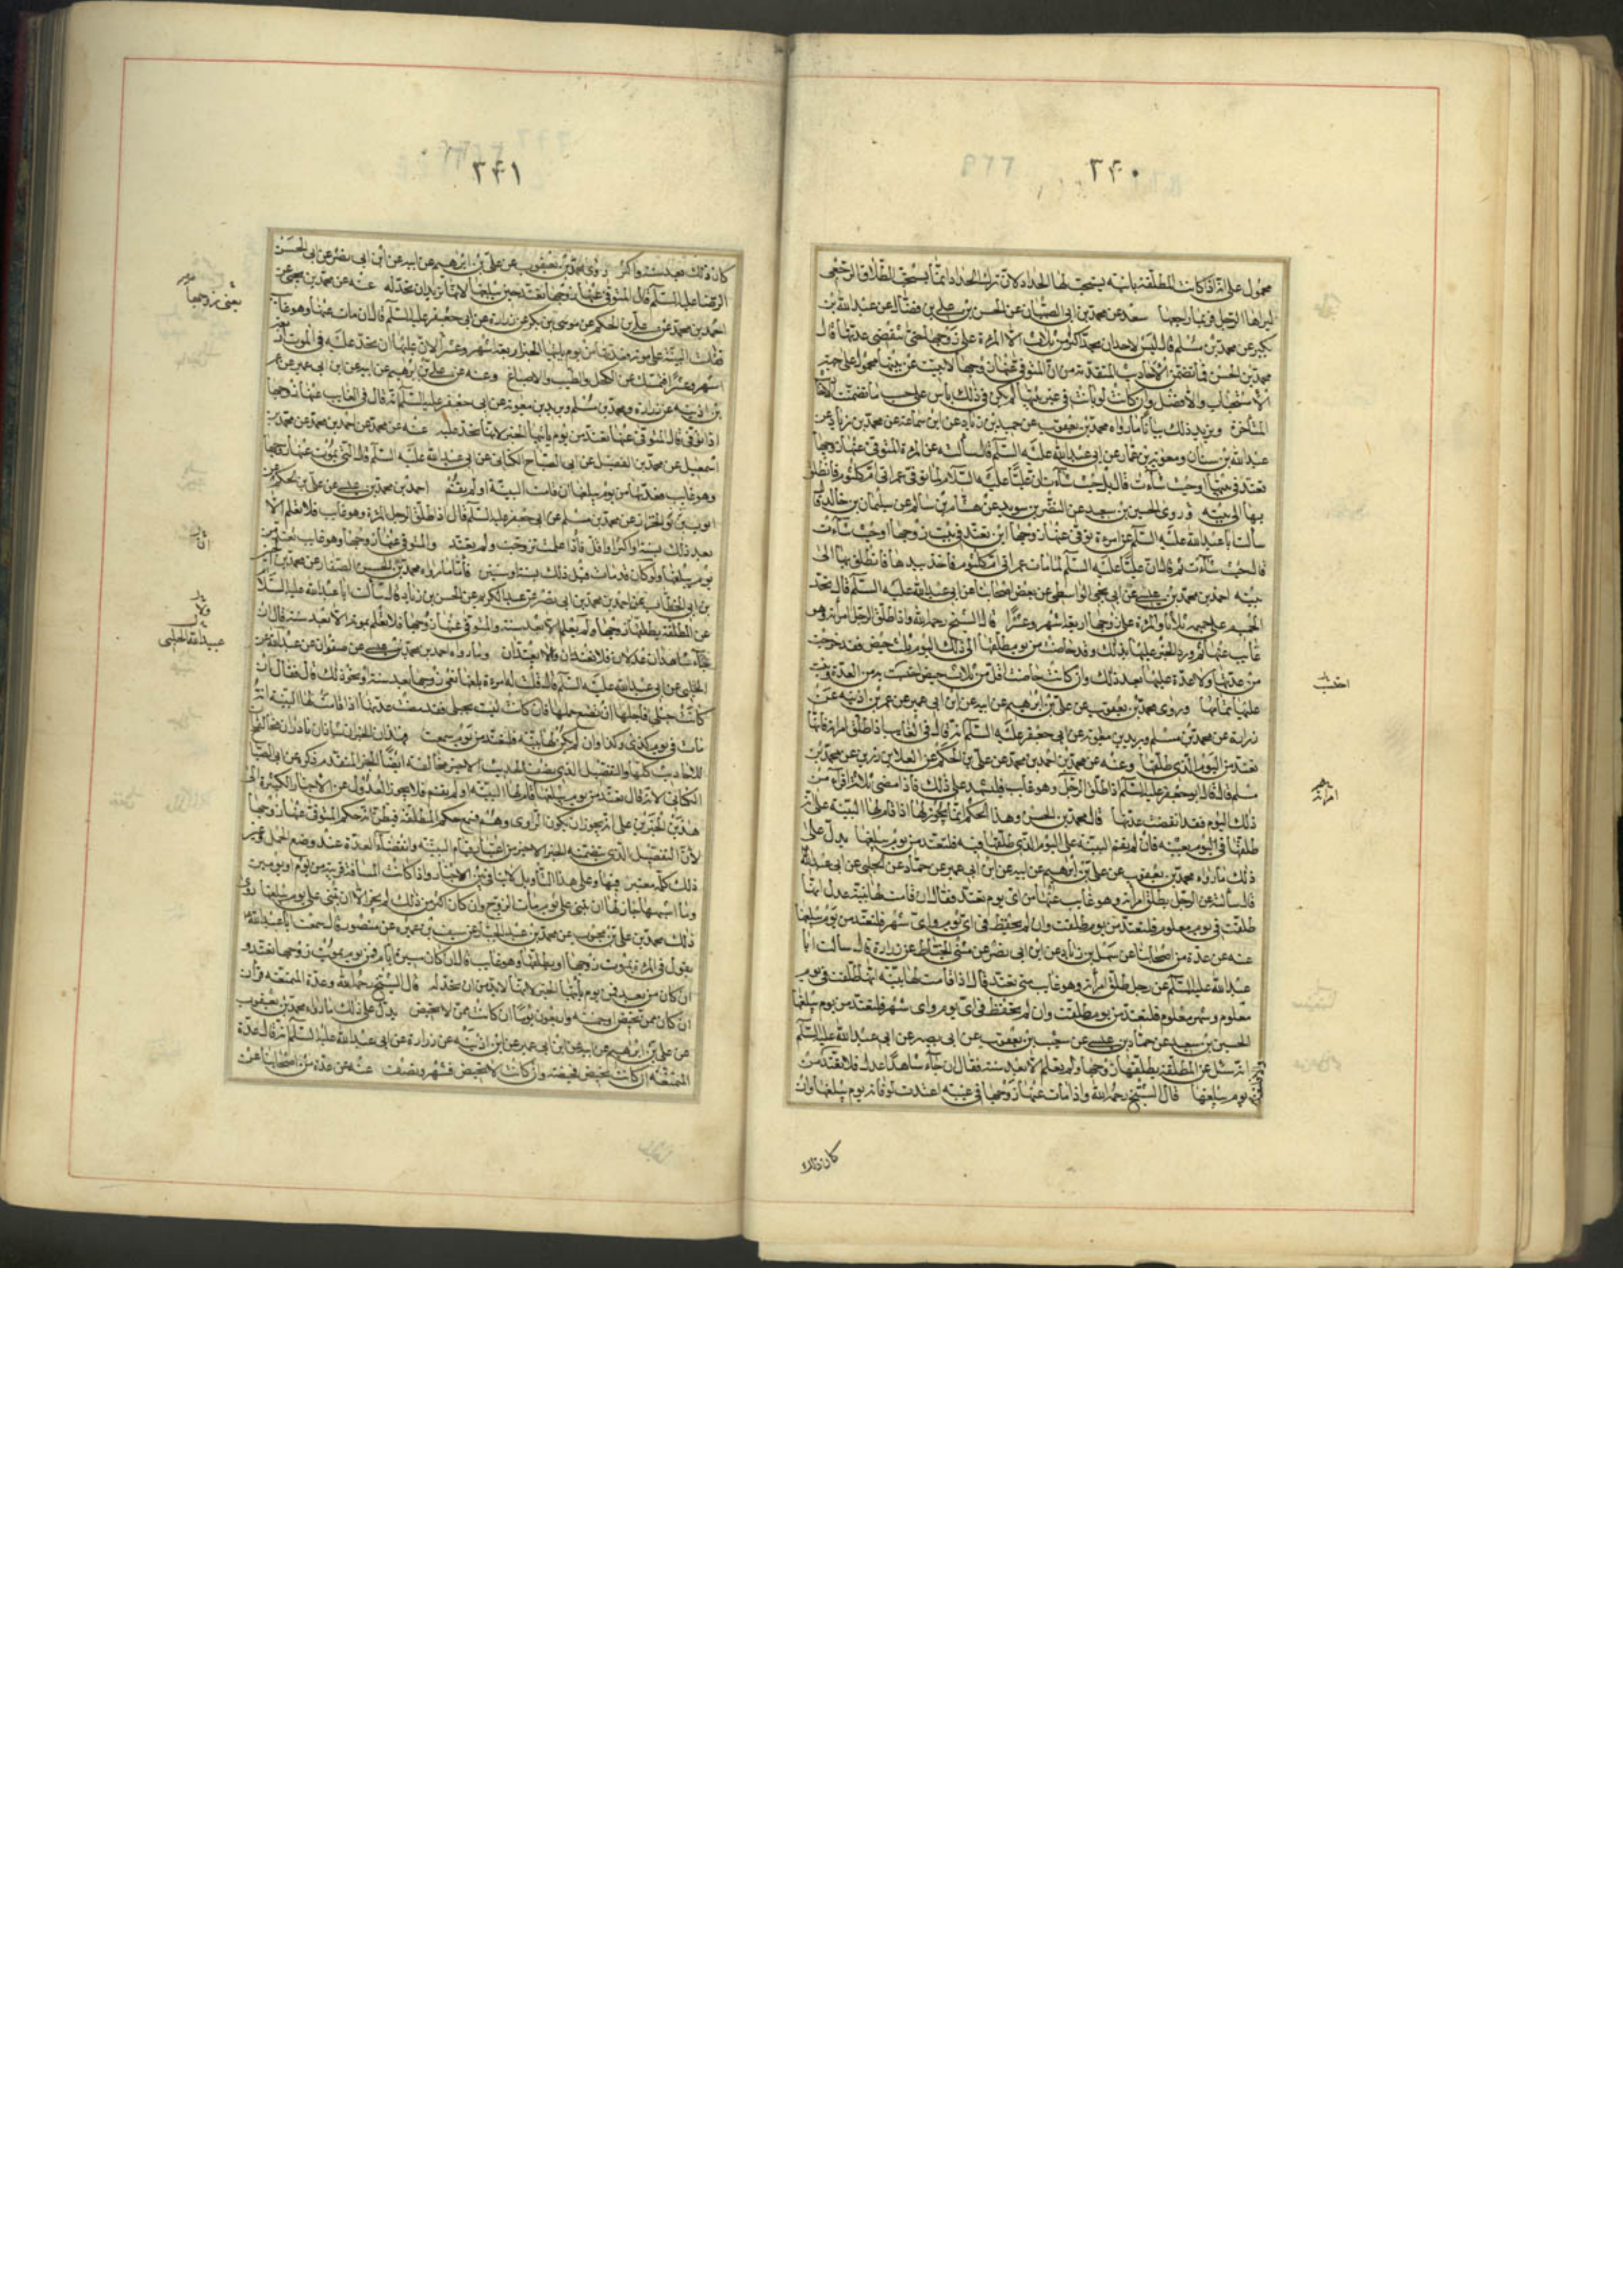 ٣٤٠
محمول على انه اذا كانت المطلقة باينة يستحب لها الحداد لان ترك الحداد انما يستحب في الطلاق الرجعي
ليراها الرجل فربما راجعها سعد عن محمد بن ابي الصهبان عن الحسن بن علي بن فضال عن عبد الله بن
بكير عن محمد بن مسلم قال ليس لاحد ان يحد اكثر من ثلاث الا المرءة على زوجها حتى تنقضي عدتها قال
محمد بن الحسن فما تضمن الاحاديث المتقدمة من ان المتوفى عنها زوجها لا تبيت عن بيتها محمول على ضرب من
الاستحباب والافضل وان كانت لو باتت في غير بيتها لم يكن في ذلك باس على حسب ما تضمنت الاخبار
المتأخرة ويزيد ذلك بيانا ما رواه محمد بن يعقوب عن حميد بن زياد عن ابن سماعة عن محمد بن زياد عن
عبد الله بن سنان ومعوية بن عمار عن ابي عبد الله عليه السلم قال سألته عن المرءة المتوفى عنها زوجها
تعتد في بيتها او حيث شاءت قال بل حيث شاءت ان عليا عليه السلام لما توفي عمر اتى ام كلثوم فانطلق
بها الى بيته وروى الحسين بن سعيد عن النضر بن سويد عن هشام بن سالم عن سليمان بن خالد قال
سألت ابا عبد الله عليه السلم عن امرءة توفي عنها زوجها اين تعتد في بيت زوجها او حيث شاءت
قال حيث شاءت ثم قال ان عليا عليه السلم لما مات عمر اتى ام كلثوم فاخذ بيدها فانطلق بها الى
بيته احمد بن محمد بن عيسى عن ابي يحيى الواسطي عن بعض اصحابنا عن ابي عبد الله عليه السلم قال يحد
الحميم على حميمه ثلاثا والمرءة على زوجها اربعة اشهر وعشرا قال الشيخ رحمه الله واذا طلق الرجل امرأته وهو
غايب عنها ثم ورد الخبر عليها بذلك وقد حاضت من يوم طلقها الى ذلك اليوم ثلث حيض فقد خرجت
من عدتها ولا عدة عليها بعد ذلك وان كانت حاضت اقل من ثلاث حيض احتسبت به من العدة وبنت
عليها تمامها وروى محمد بن يعقوب عن علي بن ابرهيم عن ابيه عن ابن ابي عمير عن عمر بن اذينه عن
زرارة عن محمد بن مسلم وبريد بن معوية عن ابي جعفر عليه السلم انه قال في الغايب اذا طلق امراته فانها
تعتد من اليوم الذي طلقها وعنه عن محمد بن احمد بن محمد عن علي بن الحكم عن العلا بن رزين عن محمد بن
مسلم قال قال ابو جعفر عليه السلم اذا طلق الرجل وهو غايب فليشهد على ذلك فاذا مضى ثلاثة اقراء من
ذلك اليوم فقد انقضت عدتها قال محمد بن الحسن وهذا الحكم انما يجوز لها اذا قام لها البينة على انه
طلقها في اليوم بعينه فان لم يقم البينة على اليوم الذي طلقها فيه فلتعتد من يوم يبلغها يدل على
ذلك ما رواه محمد بن يعقوب عن علي بن ابرهيم عن ابيه عن ابن ابي عمير عن حماد عن الحلبي عن ابي عبد الله
قال سألته عن الرجل يطلق امرأته وهو غايب عنها من اي يوم تعتد فقال ان قامت لها بينة عدل انها
طلقت في يوم معلوم فلتعتد من يوم طلقت وان لم تحفظ في اي يوم واي شهر فلتعتد من يوم يبلغها
عنه عن عدة من اصحابنا عن سهل بن زياد عن ابن ابي نصر عن مثنى الحناط عن زرارة قال سألت ابا
عبد الله عليه السلم عن رجل طلق امرأته وهو غايب متى تعتد قال اذا قامت لها بينة انها طلقت في يوم
معلوم وشهر معلوم فلتعتد من يوم طلقت وان لم تحفظ في اي يوم واي شهر فلتعتد من يوم يبلغها
الحسين بن سعيد عن حماد بن عيسى عن شعيب بن يعقوب عن ابي بصير عن ابي عبد الله عليه السلم
انه سئل عن المطلقة يطلقها زوجها ولم تعلم الا بعد سنة فقال ان جاء شاهدا عدل فلا تعتد من
يوم يبلغها قال الشيخ رحمه الله واذا مات عنها زوجها في غيبته اعتدت لوفاته يوم يبلغها وان
احتسبت
امراته
كان ذلك
٣٤١
كان ذلك بعد سنة واكثر روى محمد بن يعقوب عن علي بن ابرهيم عن ابيه عن ابن ابي نصر عن ابي الحسن
الرضا عليه السلم قال المتوفى عنها زوجها تعتد حين يبلغها لانها تريد ان تحد له عنه عن محمد بن يحيى عن
احمد بن محمد عن علي بن الحكم عن موسى بن بكر عن زرارة عن ابي جعفر عليه السلم قال ان مات عنها وهو غايب
فقامت البينة على موته فعدتها من يوم يأتيها الخبر اربعة اشهر وعشرا لان عليها ان تحد عليه في الموت اربعة
اشهر وعشرا فتمسك عن الكحل والطيب والاصباغ وعنه عن علي بن ابرهيم عن ابيه عن ابن ابي عمير عن عمر
بن اذينه عن زرارة ومحمد بن مسلم وبريد بن معوية عن ابي جعفر عليه السلم انه قال في الغايب عنها زوجها
اذا توفي قال المتوفى عنها تعتد من يوم يأتيها الخبر لانها تحد عليه عنه عن محمد عن احمد بن محمد عن محمد بن
اسمعيل عن محمد بن الفضيل عن ابي الصباح الكناني عن ابي عبد الله عليه السلم قال التي يموت عنها زوجها
وهو غايب فعدتها من يوم يبلغها ان قامت البينة او لم يقم احمد بن محمد بن عيسى عن علي بن الحكم عن
ابي ايوب الخراز عن محمد بن مسلم عن ابي جعفر عليه السلم قال اذا طلق الرجل المرءة وهو غايب فلا تعلم الا
بعد ذلك بسنة او اكثر او اقل فاذا علمت تزوجت ولم تعتد والمتوفى عنها زوجها وهو غايب تعتد من
يوم يبلغها ولو كان قد مات قبل ذلك بسنة او سنتين فأما ما رواه محمد بن الحسن الصفار عن محمد بن الحسين
بن ابي الخطاب عن احمد بن محمد بن ابي نصر عن عبد الكريم عن الحسن بن زياد قال سألت ابا عبد الله عليه السلام
عن المطلقة يطلقها زوجها ولم تعلم الا بعد سنة والمتوفى عنها زوجها فلا تعلم بموته الا بعد سنة قال ان
جاء شاهدان عدلان فلا تعتدان والا تعتدان وما رواه احمد بن محمد بن عيسى عن صفوان عن عبد الله عن
الحلبي عن ابي عبد الله عليه السلم قال قلت له امرءة بلغها نعي زوجها بعد سنة او نحو ذلك قال فقال ان
كانت حبلى فاجلها ان تضع حملها فان كانت ليست بحبلى فقد مضت عدتها اذا قامت لها البينة انه
مات في يوم كذى وكذا وان لم يكن لها بينة فلتعتد من يوم سمعت فهذان الخبران شاذان نادران مخالفان
للاحاديث كلها والتفصيل الذي يضمن الحديث الاخير مخالفه ايضا الخبر المتقدم ذكره عن ابي الصباح
الكناني لانه قال تعتد من يوم يبلغها قام لها البينة او لم يقم فلا يجوز العدول عن الاخبار الكثيرة الى
هذين الخبرين على انه يجوز ان يكون الراوي وهم فسمع حكم المطلقة فظن انه حكم المتوفى عنها زوجها
لان التفصيل الذي يتضمنه الخبر الاخير من اعتبار قيام البينة وانقضاء العدة عند وضع الحمل وغير
ذلك كله معتبر فيها وعلى هذا التأويل لا ينافي بين الاخبار واذا كانت المسافة قريبة من يوم او يومين
وما اشبهها جاز لها ان تبني على يوم مات الزوج وان كان اكثر من ذلك لم يجز الا ان تبني على يوم يبلغها روى
ذلك محمد بن علي بن محبوب عن محمد بن عبد الجبار عن سيف بن عميره عن منصور قال سمعت ابا عبد الله
يقول في المرءة يموت زوجها او يطلقها وهو غايب قال ان كان مسير ايام فمن يوم يموت زوجها تعتد و
ان كان من بعد فمن يوم يأتيها الخبر لانها لا بد من ان تحد له قال الشيخ رحمه الله وعدة المتمتعه قرآن
ان كان ممن تحيض وخمسة واربعون يوما ان كانت ممن لا تحيض يدل على ذلك ما رواه محمد بن يعقوب
عن علي بن ابرهيم عن ابيه عن ابن ابي عمير عن ابن اذينه عن زرارة عن ابي عبد الله عليه السلم انه قال عدة
المتمتعه ان كانت تحيض فحيضة وان كانت لا تحيض فشهر ونصف عنه عن عدة من اصحابنا عن
عبيد الله الحلبي